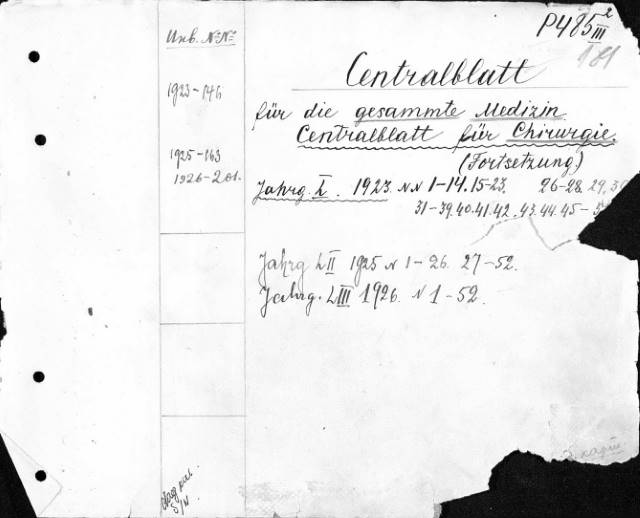 P485 2/III
181
Инв. №№
1923-146
1925-163
1926-201.
Centralblatt
für die gesammte Medizin.
Centralblatt für Chirurgie.
(Fortsetzung)
Jahrg. L. 1923. N.N 1-14. 15-23. 26-28. 29, 30
31-39. 40. 41. 42. 43. 44. 45-
Jahrg LII 1925 N 1-26. 27-52.
Jahrg. LIII 1926. N 1-52.